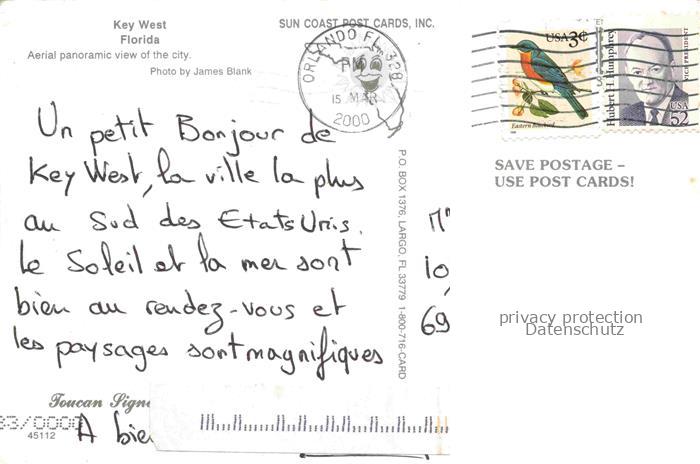 Key West
Florida
Aerial panoramic view of the city.
Photo by James Blank
SUN COAST POST CARDS, INC.
ORLANDO FL 328
PM
15 MAR
2000
USA 3¢
Eastern Bluebird
Hubert H. Humphrey
VICE PRESIDENT
USA
52
SAVE POSTAGE –
USE POST CARDS!
Un petit Bonjour de
Key West, la ville la plus
au Sud des Etats Unis.
Le Soleil et la mer sont
bien au rendez-vous et
les paysages sont magnifiques
A bie
P.O. BOX 1376, LARGO, FL 33779 1-800-716-CARD
10
69
privacy protection
Datenschutz
Toucan Signe
33/0000
45112